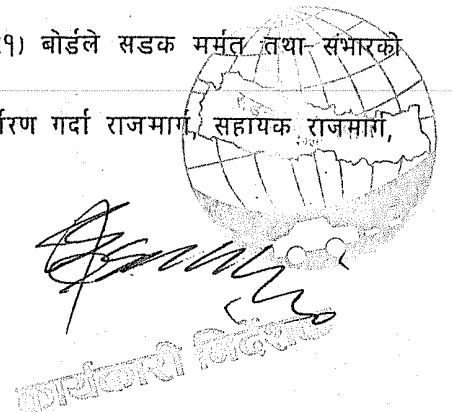 १) बोर्डले सडक मर्मत तथा संभारको
र्धारण गर्दा राजमार्ग, सहायक राजमार्ग,
कार्यकारी निर्देशक